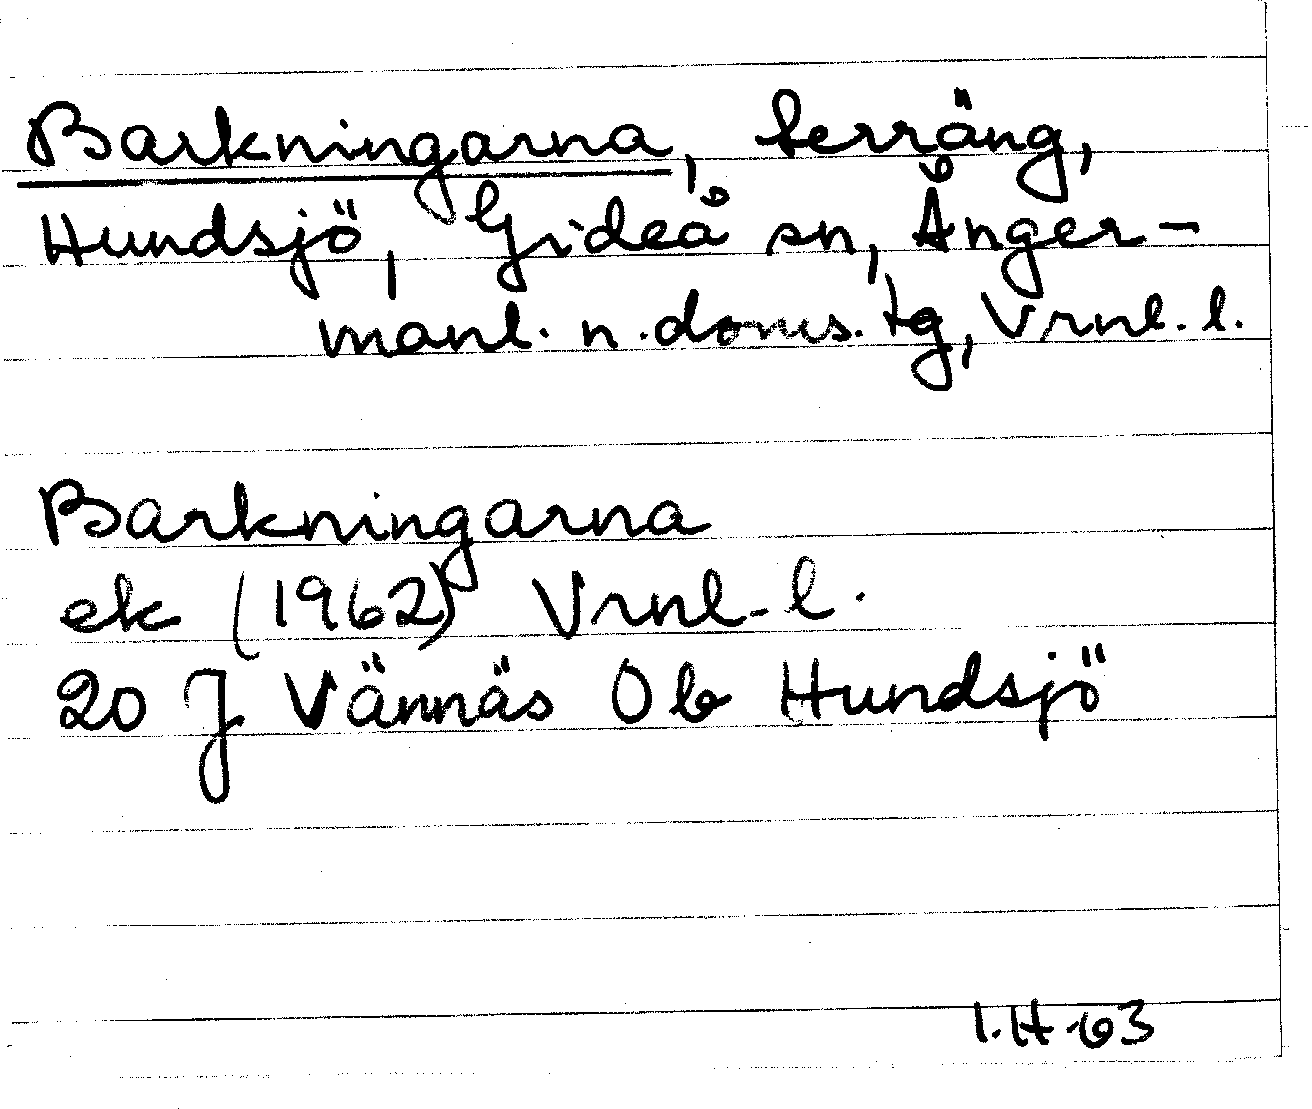 Barkningarna, terräng,
Hundsjö, Gideå sn, Ånger-
manl. n. doms. tg, Vrnl. l.
Barkningarna
ek (1962) Vrnl. l.
20 J Vännäs Ob Hundsjö
I.H-63